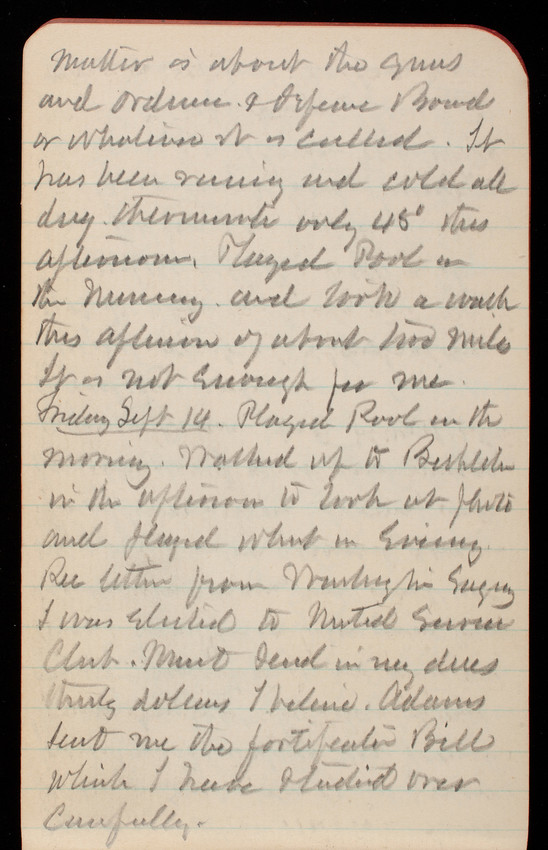 matter is about the guns
and Ordnance & Defense Board
or whatever it is called. It
has been raining and cold all
day. thermometer only 48° this
afternoon. Played Pool in
the morning and took a walk
this afternoon of about two miles
It is not enough for me.
Friday Sept 14. Played Pool in the
morning. Walked up to Bethlehem
in the afternoon to look at photo
and played whist in Evening
Rec letter from Washington saying
I was elected to United Service
Club. Must send in my dues
thirty dollars I believe. Adams
sent me the fortification Bill
which I have studied over
carefully.